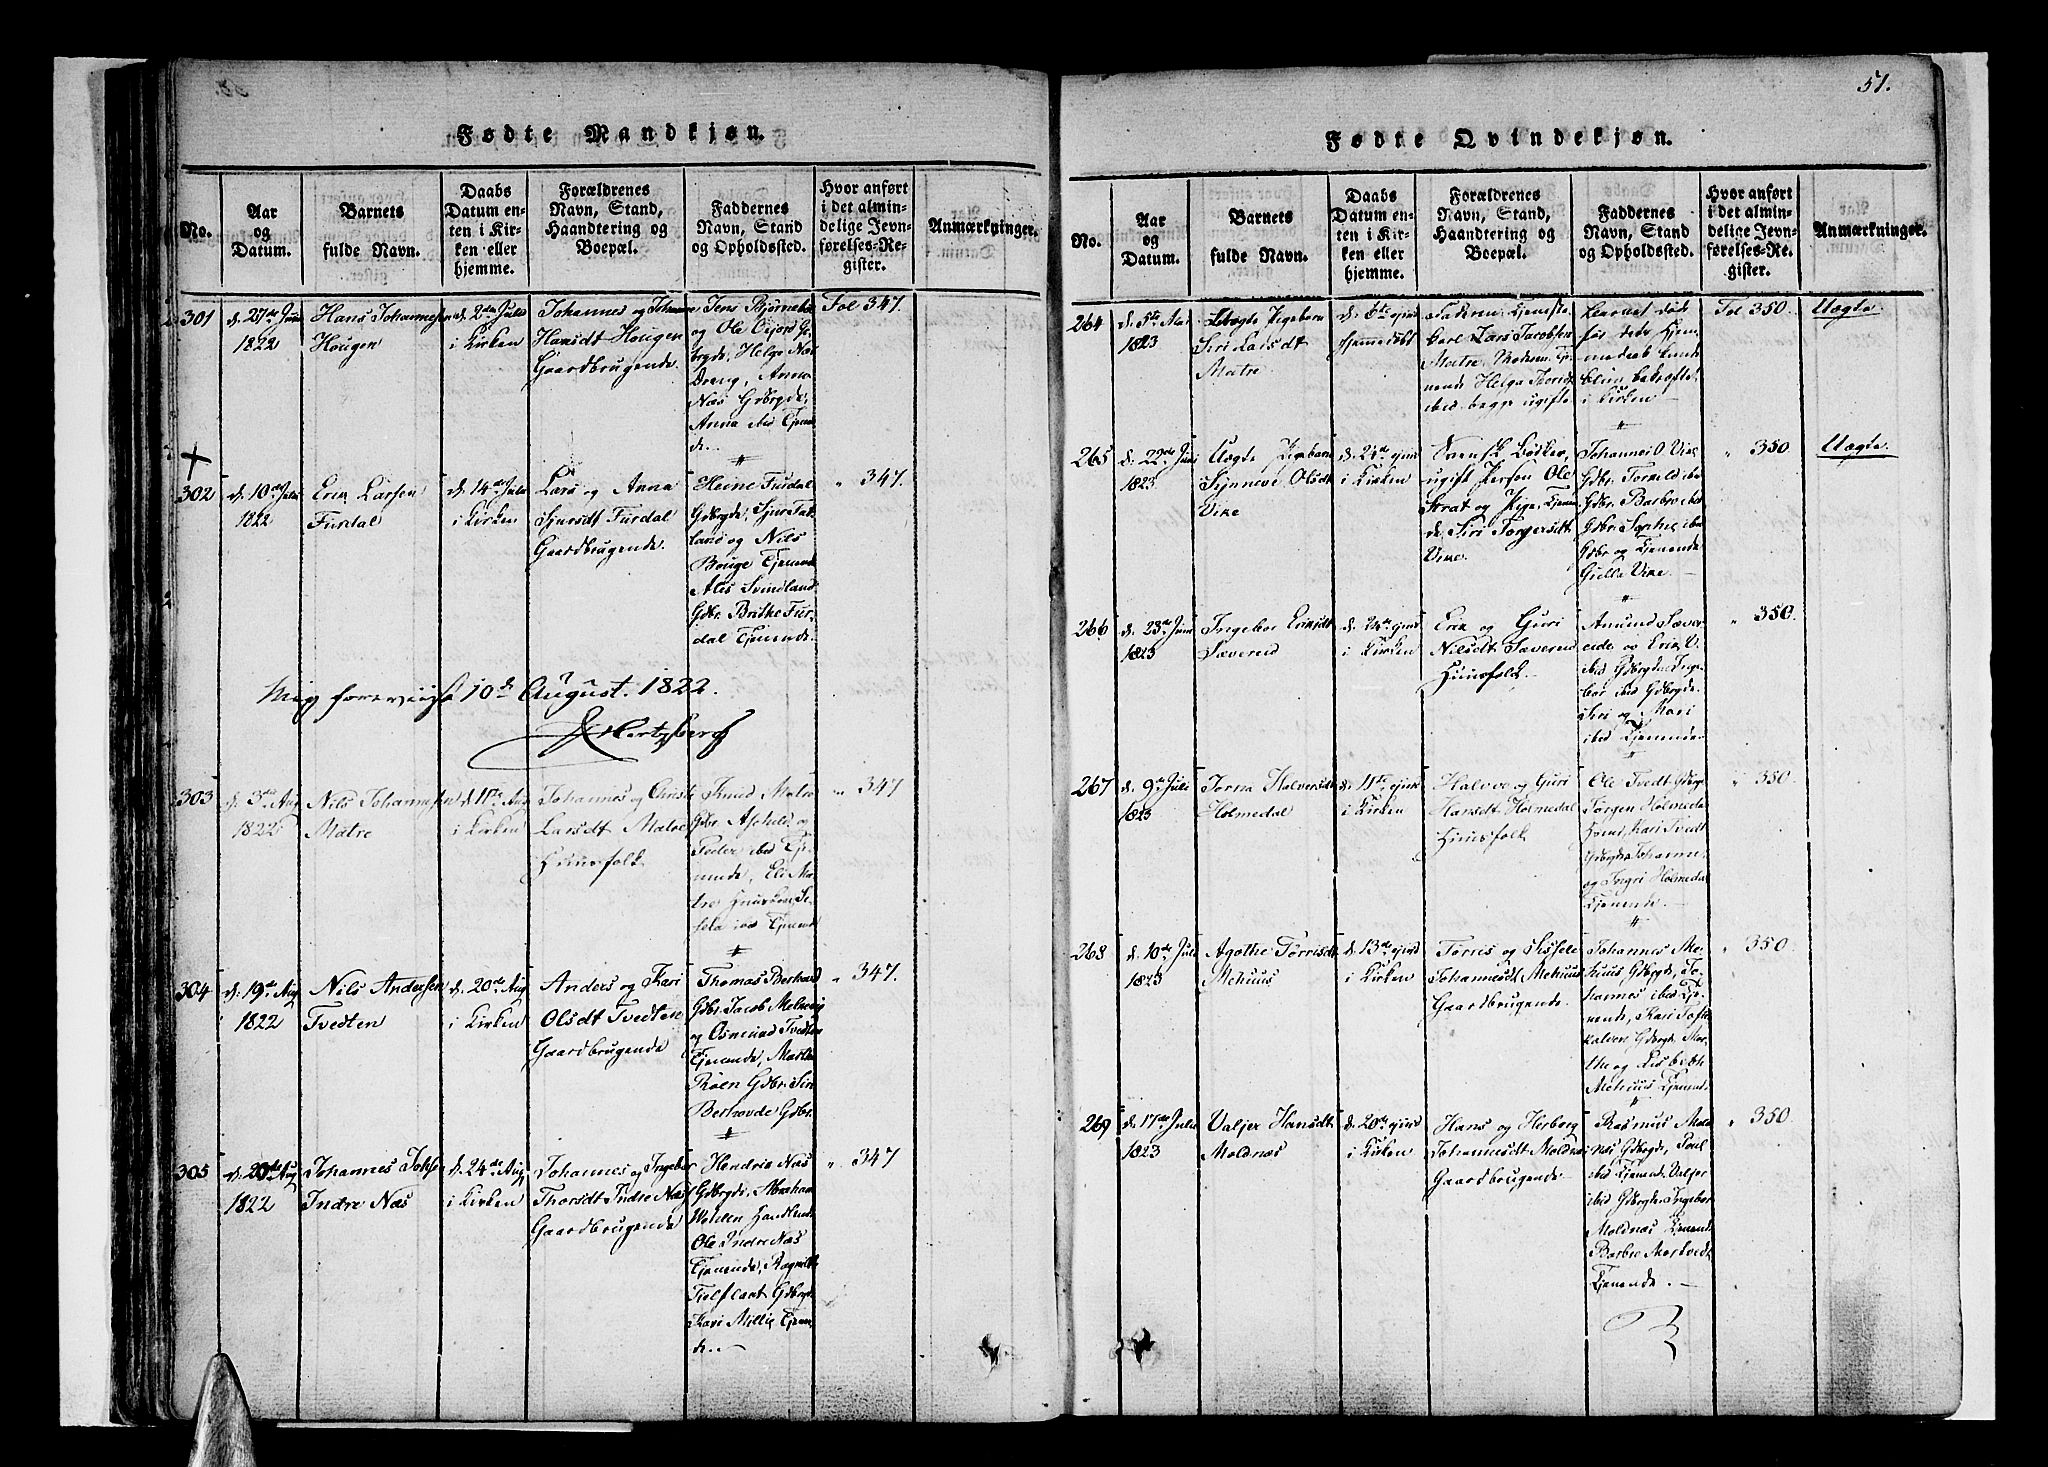 51.
Fødte Mandkjøn.
No.
Aar og Datum.
Barnets fulde Navn.
Daabs Datum enten i Kirken eller hjemme.
Forældrenes Navn, Stand, Haandtering og Boepæl.
Faddernes Navn, Stand og Opholdssted.
Hvor anført i det almindelige Jevnførelses-Register.
Anmærkninger.
301
d. 27de Juni
1822
Hans Johannesen
Hougen
d. 2den Juli
i Kirken
Johannes og
Hansdt Hougen
Gaardbrugende.
og Ole
Helge Næs
Dreng, Anna
Næs Gdbrgde,
Anna ibid Tjenen
de.
Fol 347.
302
d. 10de Juli
1822
Erik Larsen
Furdal
d. 14de Juli
i Kirken
Lars og Anna
Sjursdt Furdal
Gaardbrugende.
Heine Furdal
Gdbrgde, Sjur
land og Nils
Bouge Tjenende
Svindland
Gdbr. Britke Fur
dal Tjenende.
" 347.
10de August. 1822.
Hertzberg
303
d. 3die Aug
1822
Nils Johannesen
Matre
d. 11te Aug
i Kirken
Johannes og Christi
Larsdt Matre
Huusfolk
Knud Matre
Gdbr. Ashild og
Peder ibid Tje
nende, Eli Ma
tre
" 347
304
d. 19de Aug
1822
Nils Andersen
Tvedten
d. 20de Aug
i Kirken
Anders og Kari
Olsdt Tvedten
Gaardbrugende
Thomas
Gdbr. Jacob
og Osmund Tvedten
Tjenende,
Røen Gdbr. Siri
Berhovde Gdbr.
" 347.
305
d. 20de Aug
1822
Johannes Johs
Indre Næs
d. 24de Aug
i Kirken
Johannes og Ingebor
Thorsdt Indre Næs
Gaardbrugende
Hendric Næs
Gdbrgde, Abraham
Ole Indre Næs
Tjenende, Ragnilde
Gdbrgde
Kari Tjenen
de.
" 347
Fødte Qvindekjøn.
No.
Aar og Datum.
Barnets fulde Navn.
Daabs Datum enten i Kirken eller hjemme.
Forældrenes Navn, Stand, Haandtering og Boepæl.
Faddernes Navn, Stand og Opholdssted.
Hvor anført i det almindelige Jevnførelses-Register.
Anmærkninger.
264
d. 5te
1823
Uægte Pigebarn
Siri Larsdt
Matre
d. 6te ejusd
hjemmedøbt
Faderen Tjeneste
karl Lars Jacobsen
Matre, Moderen Tje
nende Helga
ibid begge ugifte
Barnet døde
før dets Hjem
medaab kunde
blive bekræftet
i Kirken
Fol 350.
Uægte.
265
d. 22de Juni
1823
Uægte Pigebarn
Synneve Olsdt
Vike
d. 24de ejusd
i Kirken
Svensk Bødker
ugift Person Ole
Strat og Pige, Tjenen
de, Siri Torgersdt
Vike.
Johannes O. Vike
Gdbr Torald ibid
Gdbr. Barbro ibid
Gdbr. ibid
Gdbr og Tjenende
Vike.
" 350.
Uægte.
266
d. 23de Juni
1823
Ingebor Eriksdt
Sævereid
d. 24de ejusd
i Kirken
Erik og Guri
Nilsdt Sævereid
Huusfolk.
Amund Sæver
eide og Erik O.
ibid Gdbrgde, Inge
bor ibid Gdbrgde,
Siri og Mari
ibid Tjenende
" 350.
267
d. 9de Juli
1823
Jorna Halversdt
Holmedal
d. 11te ejusd
i Kirken
Halvor og Guri
Hansdt Holmedal
Huusfolk
Ole Tvedt Gdbrg
Torgen Holmedal
Kari Tvedt
Gdbrgde, Johannes
og Ingri Holmedal
Tjenende.
" 350.
268
d. 10de Juli
1823
Agothe Torrisdt
Mehuus
d. 13de ejusd
i Kirken
Torres og Sissele
Johannesdt Mehuus
Gaardbrugende.
Johannes Me
huus Gdbrgde, Jo
hannes ibid Tje
nende, Kari Tofte
kalven Gdbrgde, Mar
the og Lisbeth
Mehuus Tjenende
" 350.
269
d. 17de Juli
1823
Valjer Hansdt
Moldnæs
d. 20de ejusd
i Kirken
Hans og Herborg
Johannesdt Moldnæs
Gaardbrugende.
Rasmus Mold
næs Gdbrgde, Poul
ibid Tjenende, Valjer
ibid Gdbrgde, Ingebor
Moldnæs Tjenende
Barbro
Tjenende.
" 350.